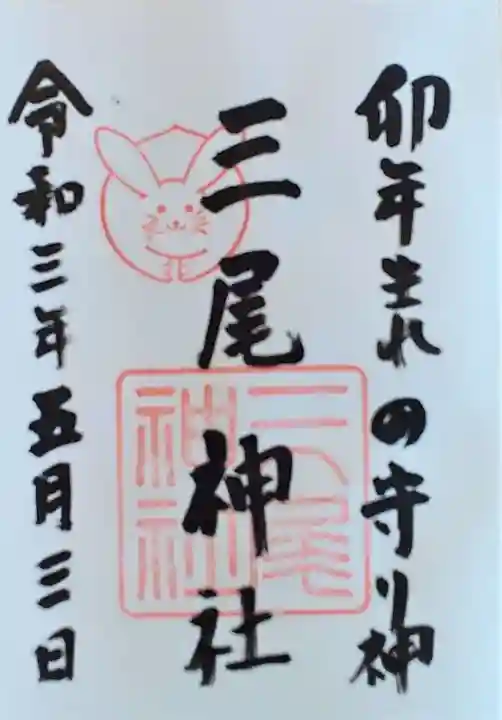 卯年生れの守り神
三尾神社
三尾神社
令和三年五月三日